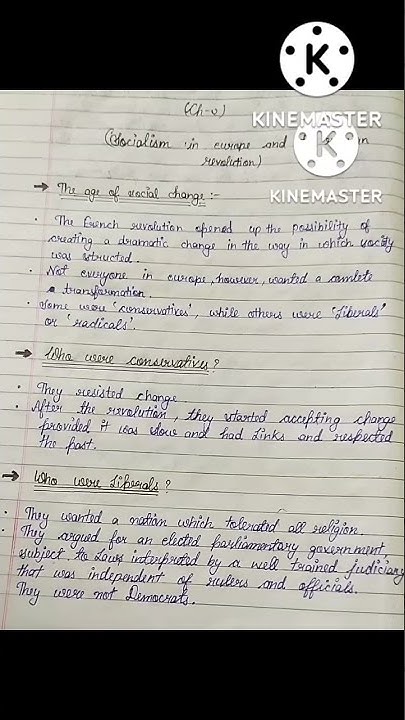 KINEMASTER
(Ch-2)
(Socialism in europe and
revolution)
KINEMASTER
→ The age of social change :-
• The French revolution opened up the possibility of
creating a dramatic change in the way in which society
was structed.
• Not everyone in europe, however, wanted a comlete
a transformation.
• Some were 'conservatives', while others were 'Liberals'
or 'radicals'.
→ Who were conservatives?
• They resisted change.
• After the revolution, they started accepting change
provided it was slow and had links and respected
the past.
→ Who were Liberals ?
• They wanted a nation which tolerated all religion.
• They argued for an elected parliamentary government,
subject to Laws interpreted by a well trained judiciary
that was independent of rulers and officials.
They were not Democrats.